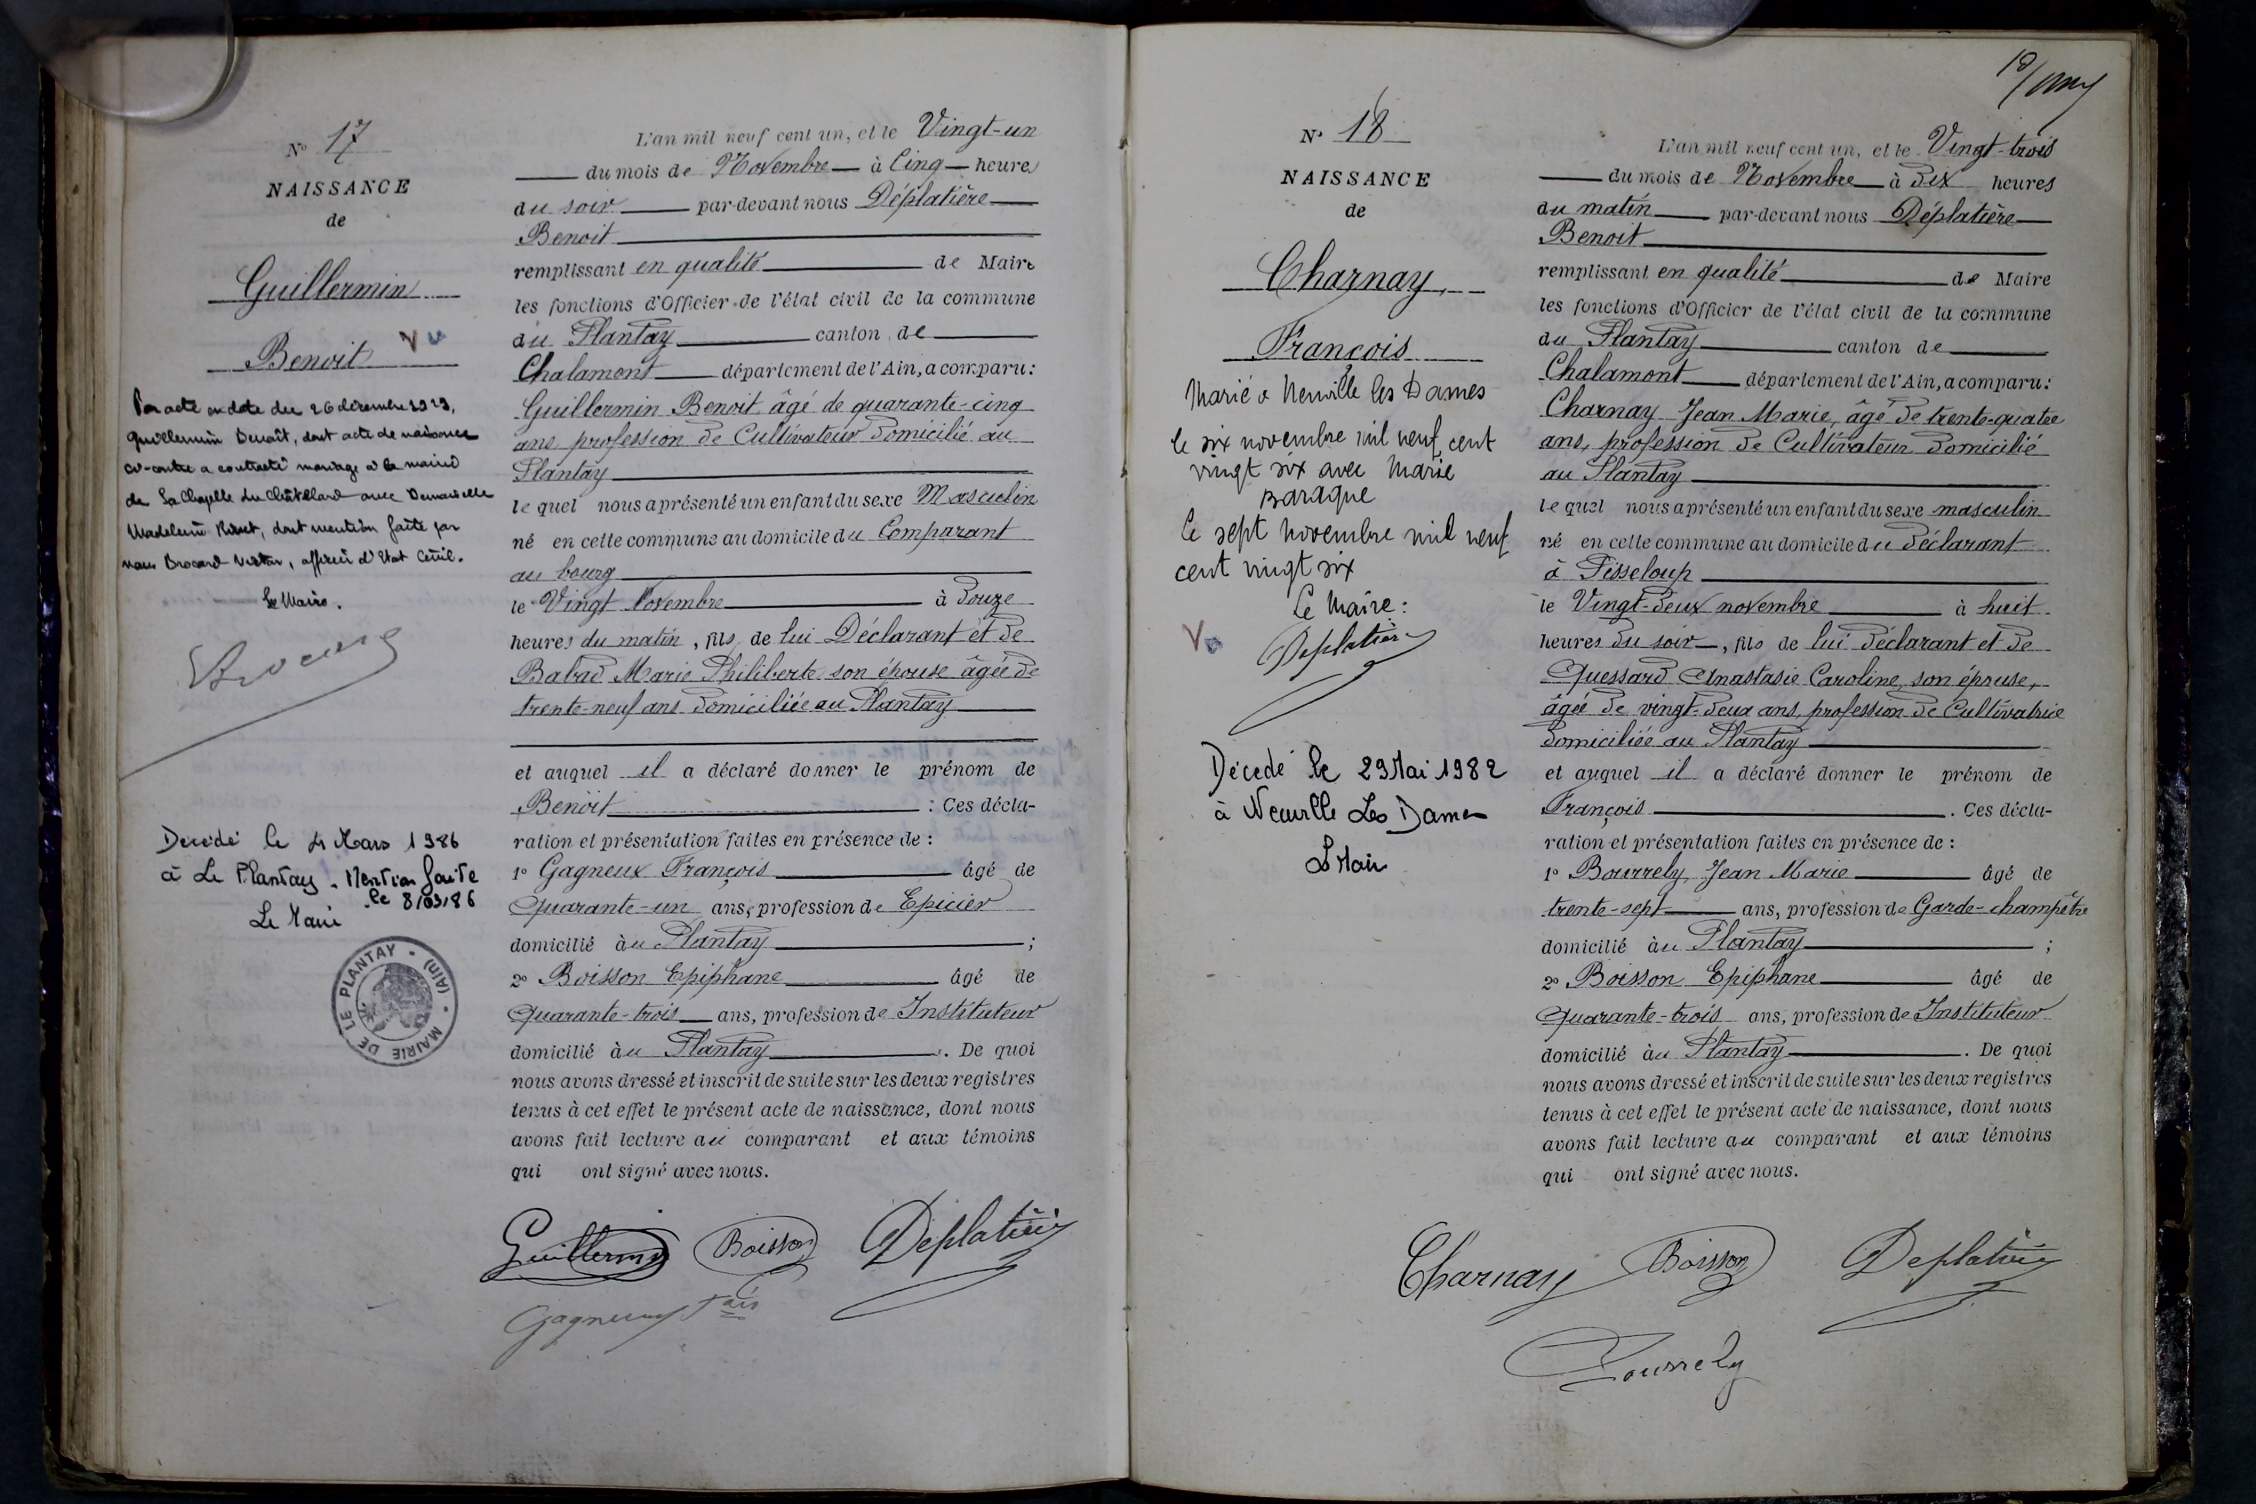 N° 17
NAISSANCE
de
Guillermin
Benoit Vu
Par acte en date du 26 décembre 1929,
Guillermin Benoît, dont acte de naissance
ci-contre a contracté mariage à la mairie
de La Chapelle du Châtelard avec Demoiselle
Madeleine, dont mention faite par
nous Brocard, officier d'Etat Civil.
Le Maire.
Brocard
Décédé le 4 Mars 1986
à Le Plantay. Mention faite
le 8/03/86
Le Maire
MAIRIE DE LE PLANTAY (AIN)
L'an mil neuf cent un, et le Vingt-un
du mois de Novembre à Cinq heures
du soir par-devant nous Déplatière
Benoit
remplissant en qualité de Maire
les fonctions d'Officier de l'état civil de la commune
du Plantay canton de
Chalamont département de l'Ain, a comparu:
Guillermin Benoit âgé de quarante-cinq
ans, profession de Cultivateur domicilié au
Plantay
le quel nous a présenté un enfant du sexe Masculin
né en cette commune au domicile du Comparant
au bourg
le Vingt Novembre à Douze
heures du matin, fils de lui Déclarant et de
Babad Marie Philiberte son épouse âgée de
trente-neuf ans domiciliée au Plantay
et auquel il a déclaré donner le prénom de
Benoit : Ces décla-
ration et présentation faites en présence de :
1° Gagneux François âgé de
Quarante-un ans, profession de Epicier
domicilié àu Plantay ;
2° Boisson Epiphane âgé de
Quarante-trois ans, profession de Instituteur
domicilié àu Plantay. De quoi
nous avons dressé et inscrit de suite sur les deux registres
tenus à cet effet le présent acte de naissance, dont nous
avons fait lecture au comparant et aux témoins
qui ont signé avec nous.
Guillermin Boisson Déplatière
Gagneux Fçois
N° 18
NAISSANCE
de
Charnay
François
Marié à Neuville les Dames
le six novembre mil neuf cent
vingt six avec Marie
Baraque
Le sept novembre mil neuf
cent vingt six
Le Maire :
Vu Deplatière
Décédé le 29 Mai 1982
à Neuville Les Dames
Le Maire
L'an mil neuf cent un, et le Vingt-trois
du mois de Novembre à Dix heures
du matin par-devant nous Déplatière
Benoit
remplissant en qualité de Maire
les fonctions d'Officier de l'état civil de la commune
du Plantay canton de
Chalamont département de l'Ain, a comparu:
Charnay Jean Marie, âgé de trente-quatre
ans, profession de Cultivateur domicilié
au Plantay
le quel nous a présenté un enfant du sexe masculin
né en cette commune au domicile du déclarant
à Pisseloup
le Vingt-deux novembre à huit
heures du soir, fils de lui déclarant et de
Quessard Anastasie Caroline, son épouse,
âgée de vingt-deux ans, profession de Cultivatrice
domiciliée au Plantay
et auquel il a déclaré donner le prénom de
François. Ces décla-
ration et présentation faites en présence de :
1° Bourrely Jean Marie âgé de
trente-sept ans, profession de Garde-champêtre
domicilié àu Plantay ;
2° Boisson Epiphane âgé de
Quarante-trois ans, profession de Instituteur
domicilié àu Plantay. De quoi
nous avons dressé et inscrit de suite sur les deux registres
tenus à cet effet le présent acte de naissance, dont nous
avons fait lecture au comparant et aux témoins
qui ont signé avec nous.
Charnay Boisson Deplatière
Bourrely